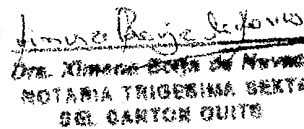 Dra. Ximena Borja de Navas
NOTARIA TRIGESIMA SEXTA
DEL CANTON QUITO